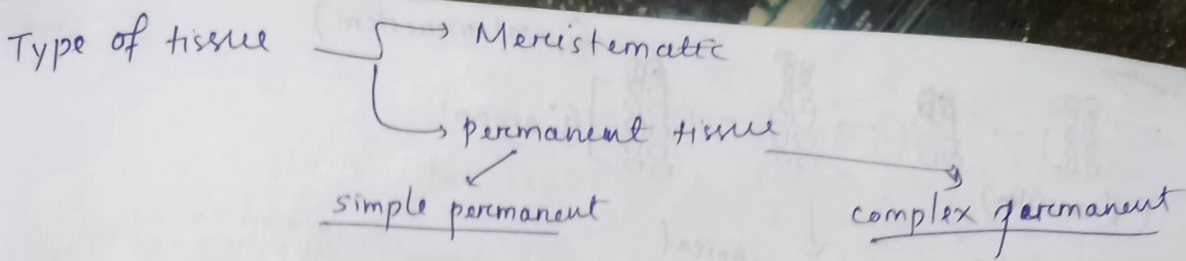 Type of tissue → Meristematic
→ permanent tissue
simple permanent
complex permanent